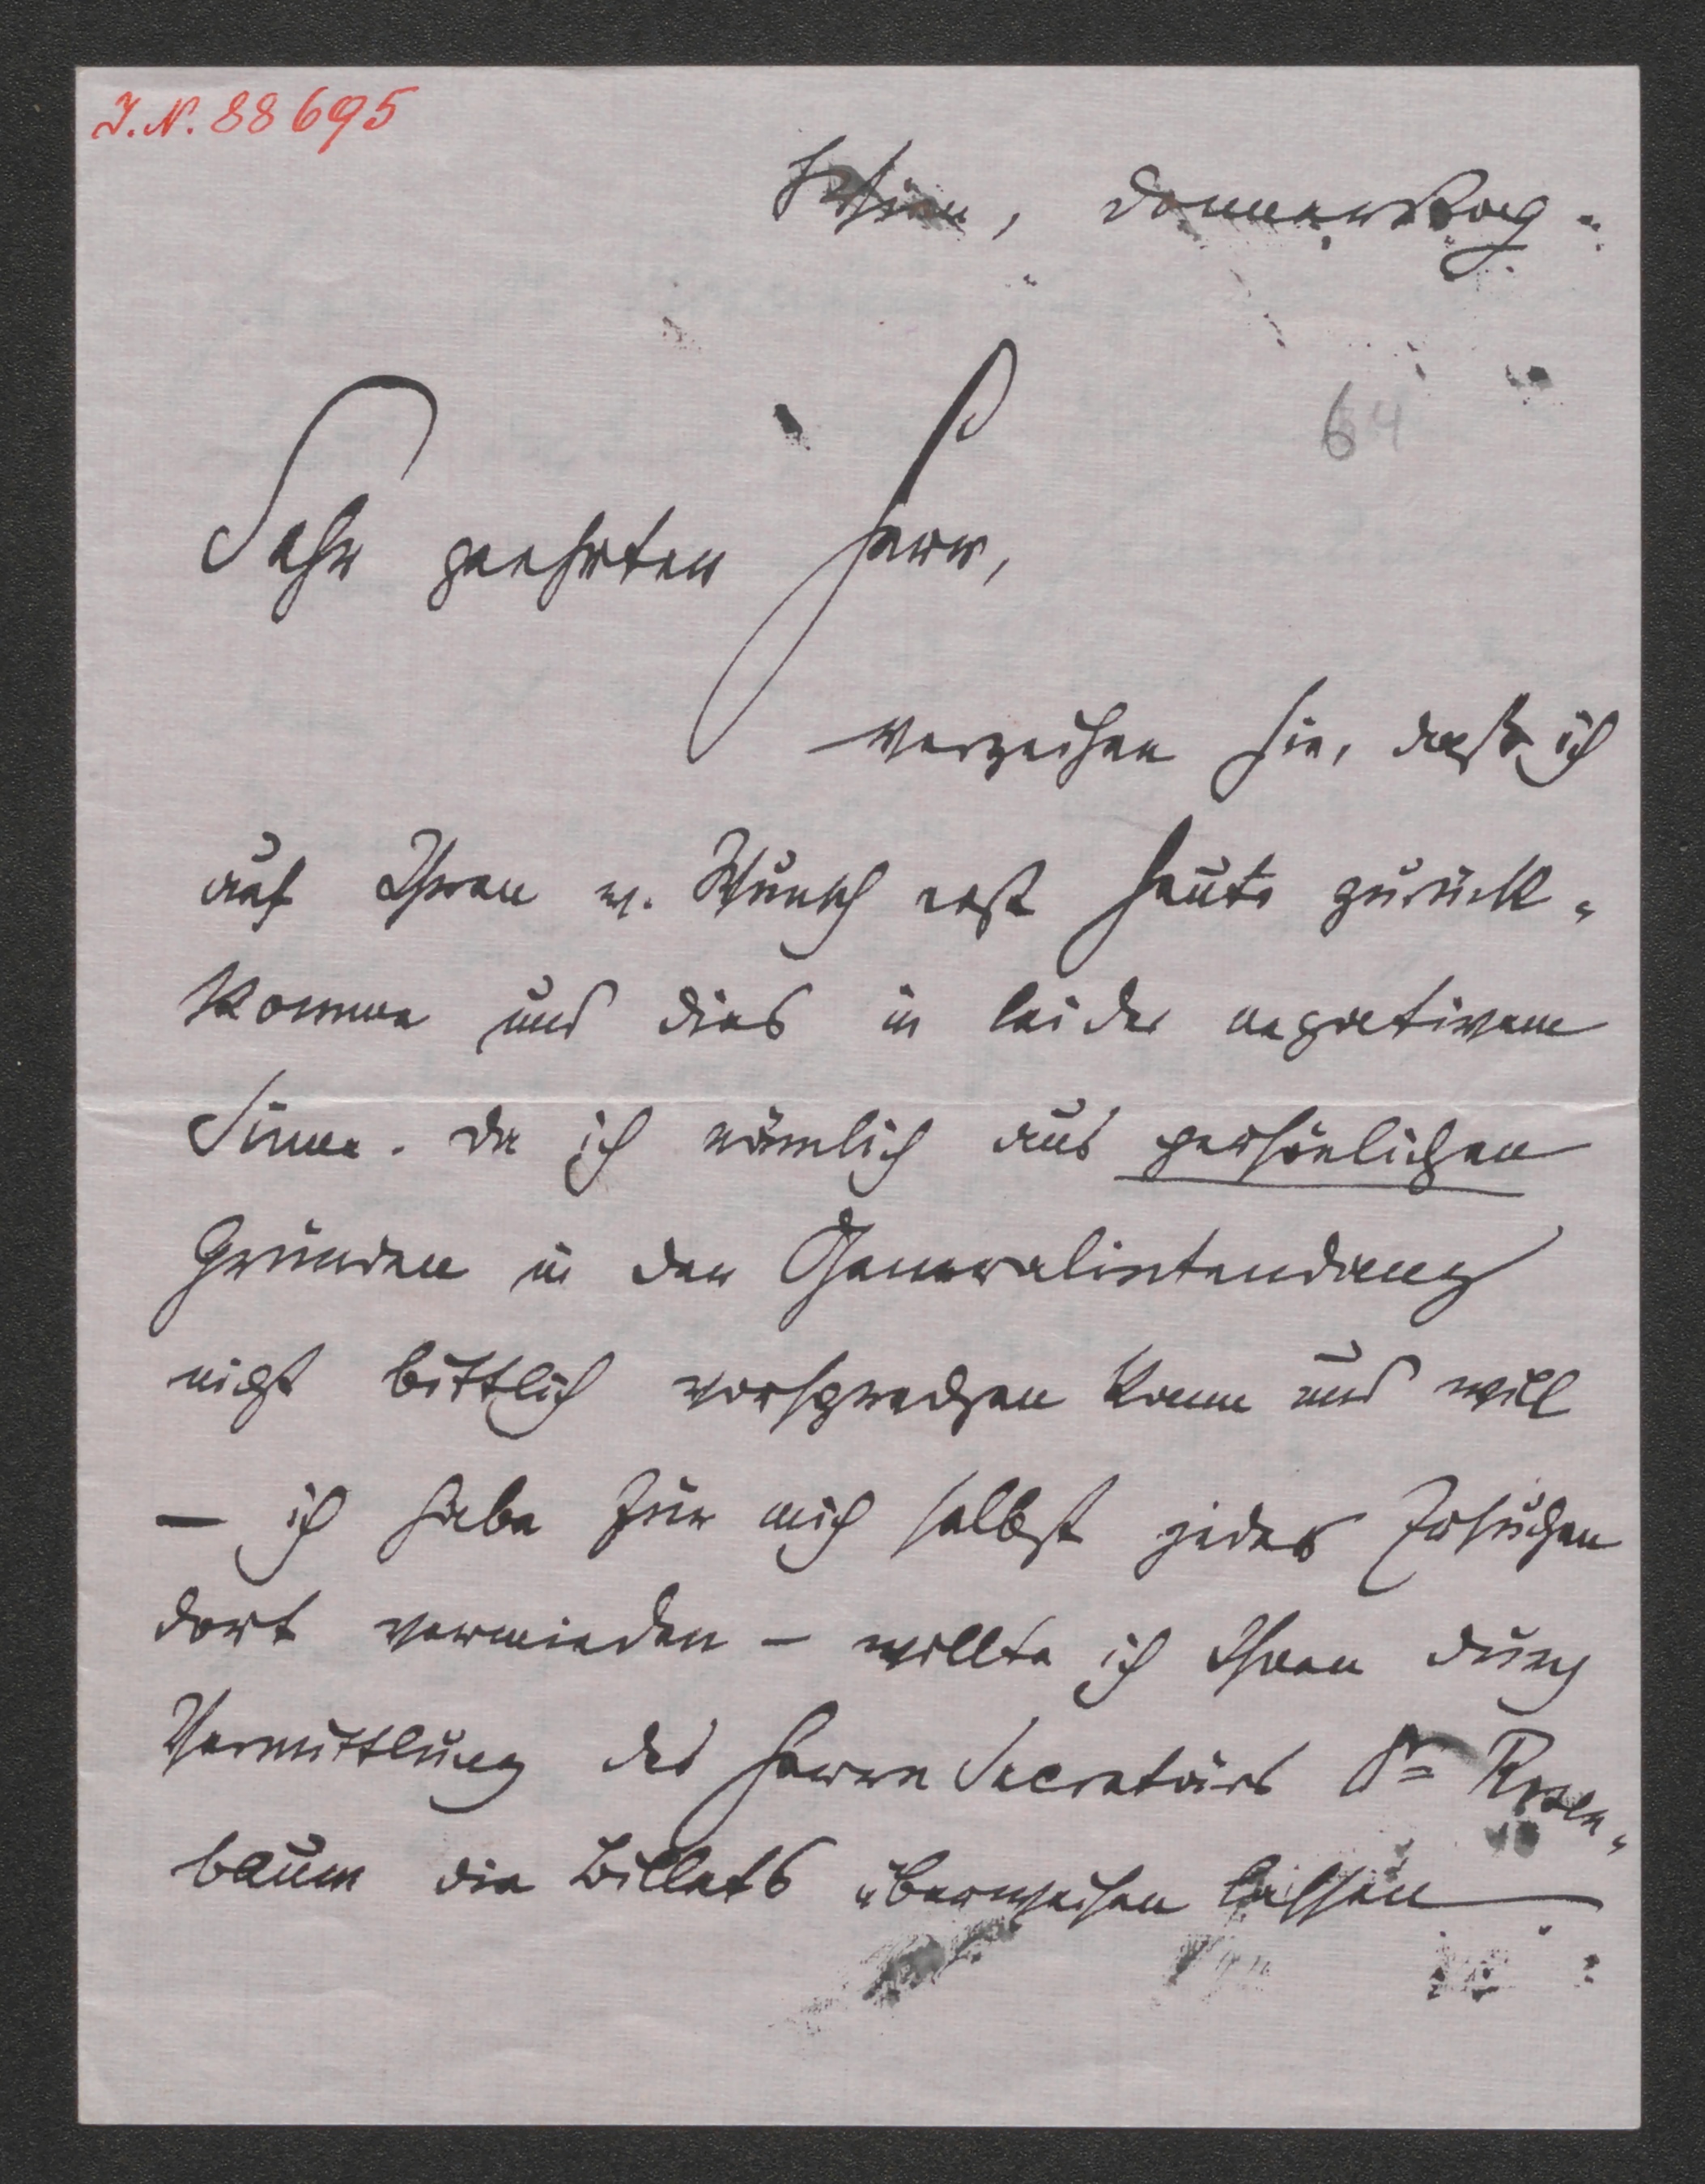 J.N. 88695
Wien, Donnerstag.
64
Sehr geehrter Herr,
verzeihen Sie, daß ich
auf Ihren w. Wunsch erst heute zurück-
komme und dies in leider negativem
Sinne. Da ich nämlich aus persönlichen
Gründen in der Generalintendanz
nicht bittlich vorsprechen kann und will
– ich habe für mich selbst jedes Ersuchen
dort vermieden – wollte ich Ihnen durch
Vermittlung des Herrn Secretärs Dr Rosen-
baum die Billets überweisen lassen